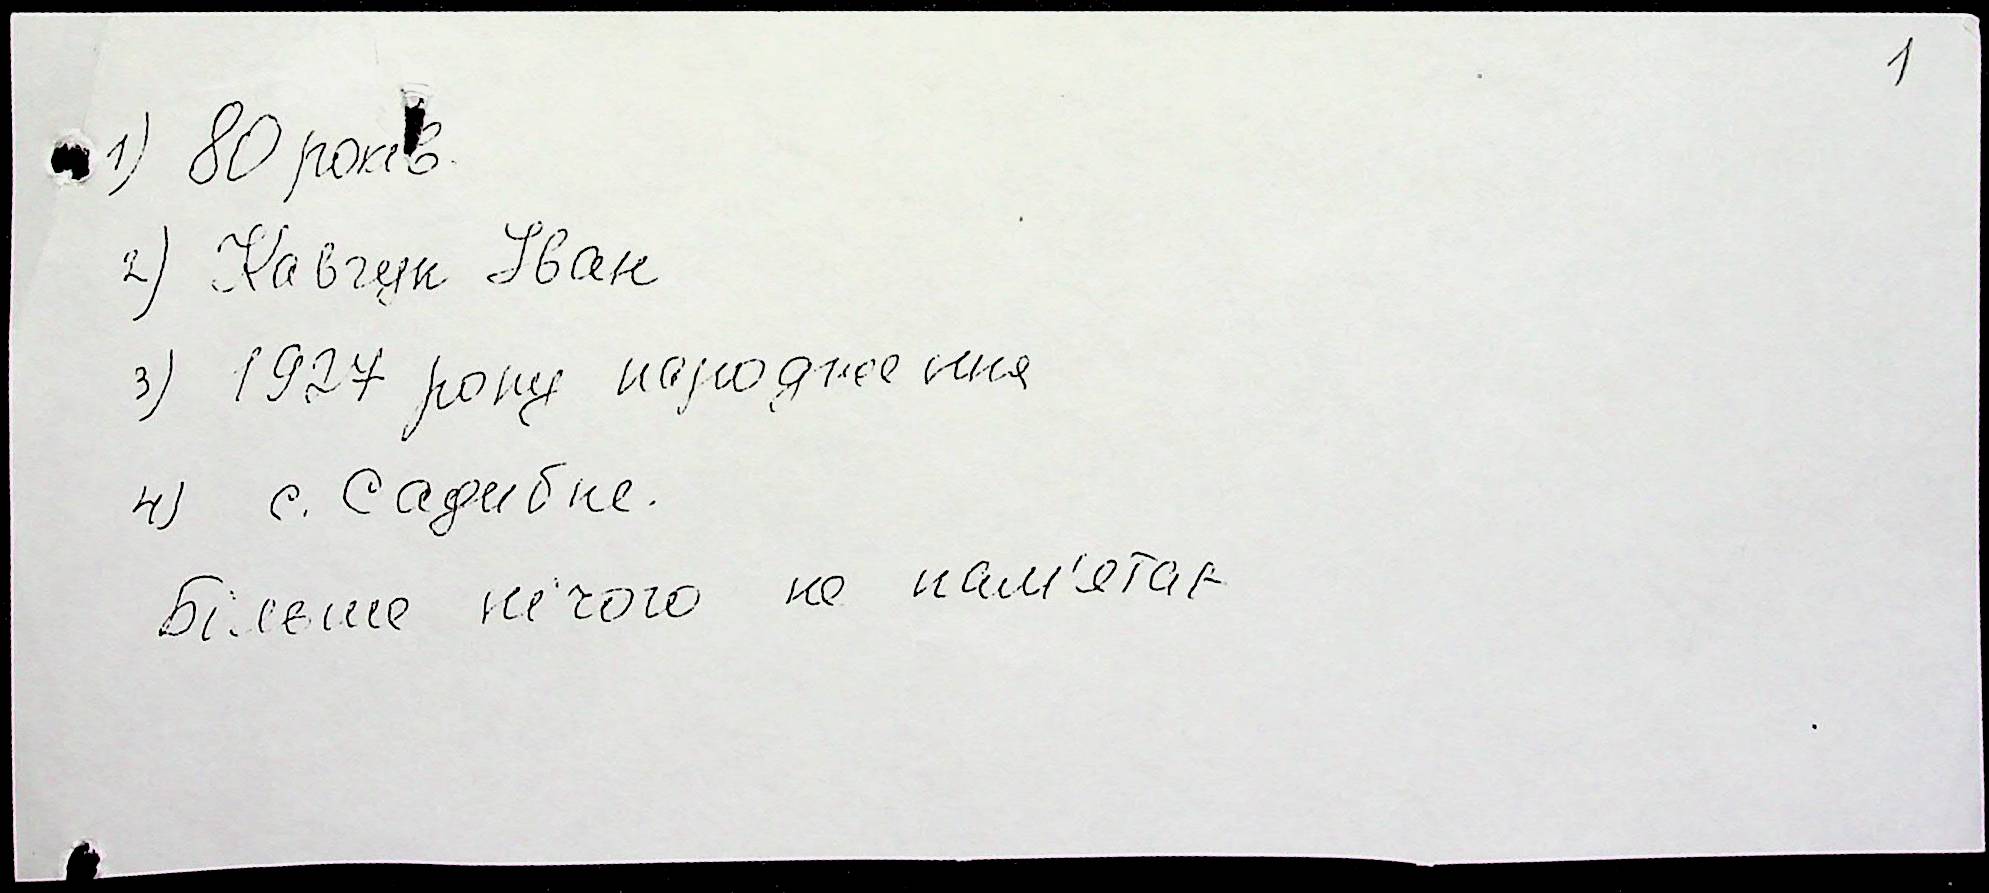 1
1) 80 років.
2) Кавчук Іван
3) 1927 року народження
4) с. Садибне.
Більше нічого не пам'ятає